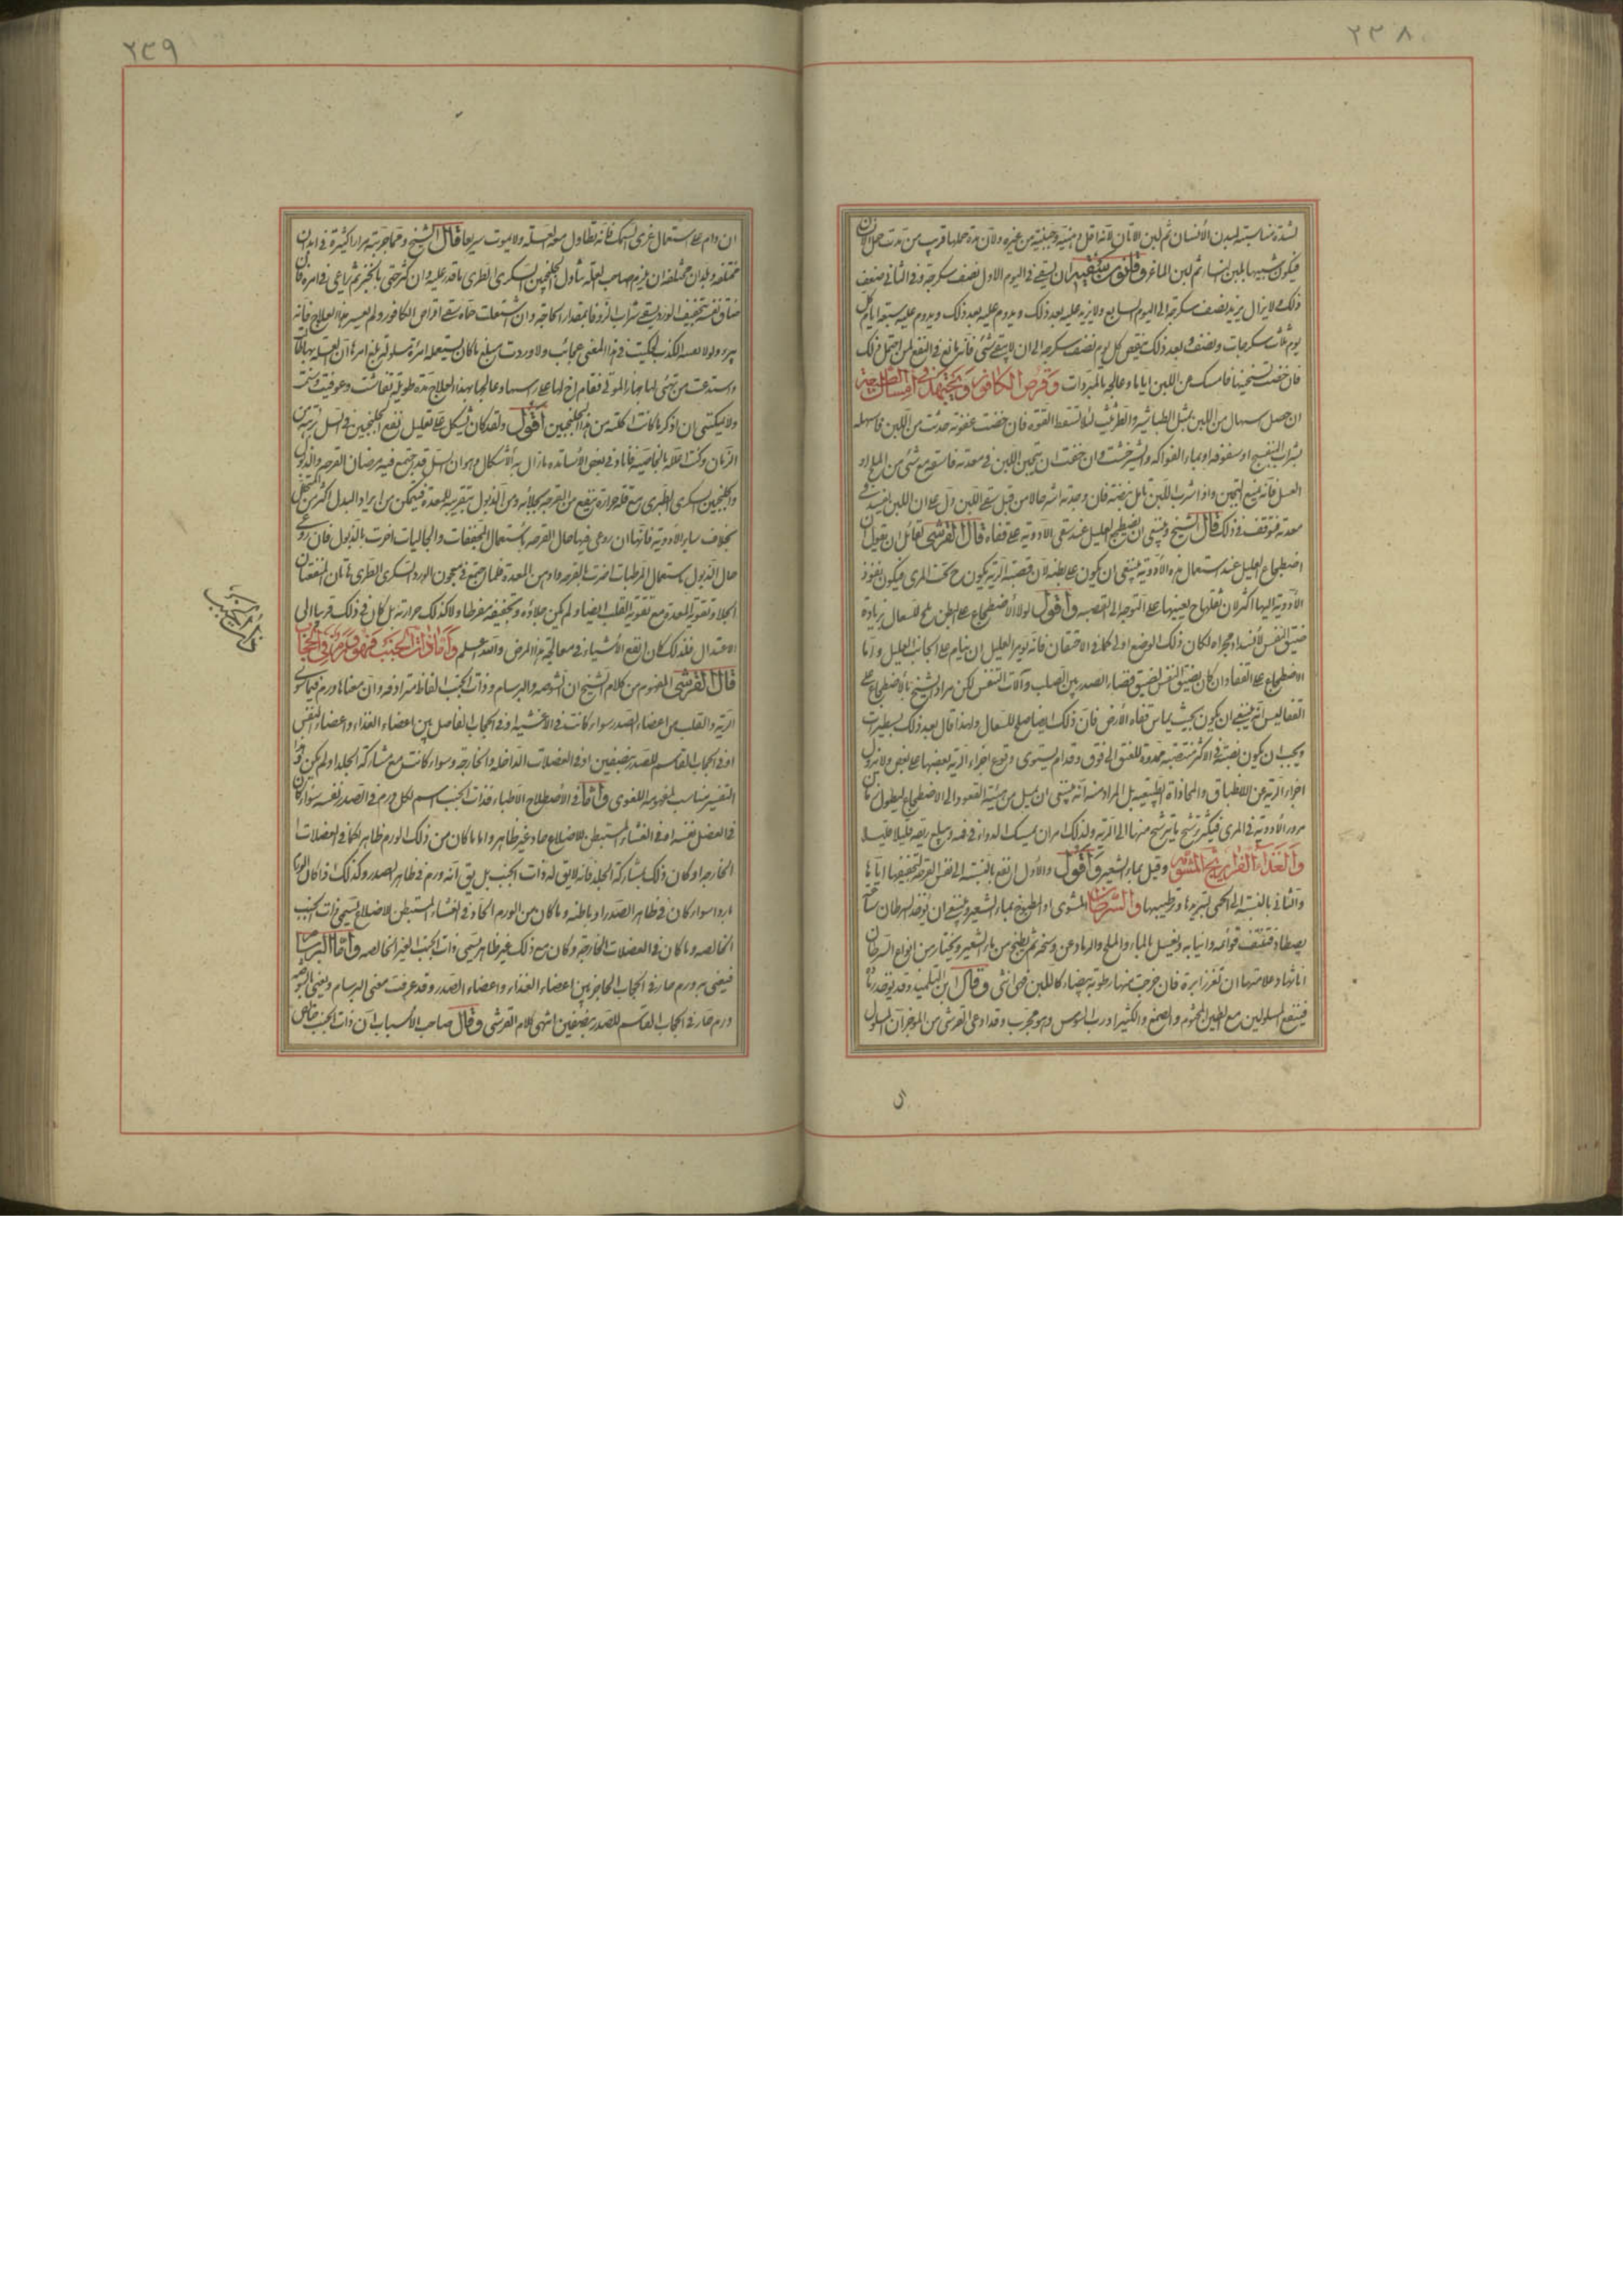 ٢٣٨
لشدة مناسبته لبدن الانسان ثم لبن الاتان لانه اقل دهنية وجبنية من غيره ولان مدة حملها قريب من مدت حمل الانسان
فيكون شبيها بلبن النساء ثم لبن الماعز وقانون سقيه ان يسقى فى اليوم الاول نصف سكرجة وفى الثانى ضعف
ذلك ولا يزال يزيد نصف سكرجة الى اليوم السابع ولا يزيد عليه بعد ذلك ويدوم عليه سبعة ايام كل
يوم ثلاث سكرجات ونصف وبعد ذلك ينقص كل يوم نصف سكرجه الى ان لا يسقى شئ فانه بالغ فى النفع لمن احتمل ذلك
فان خفت تسخينا فامسك عن اللبن اياما وعالجه بالمبردات وقرص الكافور ويجتهد فى امساك طبيعته
ان حصل اسهال من اللبن بمثل الطباشير والطراثيث لئلا تسقط القوة فان خفت عفونة حدثت من اللبن فاسهله
بشراب البنفسج او سفوفه او بماء الفواكه والشيرخشت وان خفت ان يتجبن اللبن فى معدته فاسقه مع شئ من الملح او
العسل فانه يمنع التجبن واذا شرب اللبن تامل نبضه فان وجدته اشد حالا من قبل سقى اللبن دل على ان اللبن لم يفسد فى
معدته فتوقف فى ذلك قال الشيخ وينبغى ان يضطجع العليل عند سقى الادوية على قفاه قال القرشى لقائل ان يقول ان
اضطجاع العليل عند استعمال هذه الادوية ينبغى ان يكون على بطنه لان قصبة الرية يكون ح تحت المرى فيكون نفوذ
الادوية اليها اكثر لان ثقلها ح يعينها على التوجه الى القصبه واقول لولا ان الاضطجاع على البطن مهيج للسعال بزيادة
ضيق النفس لانسداد مجراه لكان ذلك الوضع اولى كما فى الاختناق فانه يؤمر العليل ان ينام على الجانب العليل واما
الاضطجاع على القفا وان كان يضيق النفس لضيق فضاء الصدر بين الصلب وآلات التنفس لكن مراد الشيخ بالاضطجاع على
القفا ليس انه ينبغى ان يكون بحيث يماس قفاه الارض فان ذلك ايضا مهيج للسعال ولهذا قال بعد ذلك بسطيرات
ويجب ان يكون نصبته فى الاكثر منتصبة ممدودة للعنق الى فوق وقدام ليستوى وقوع اجزاء الرية بعضها على بعض ولا يزول
اجزاء الرية عن الانطباق والمحاذاة الطبيعيه بل المراد منه انه ينبغى ان يميل من هيئة القعود الى الاضطجاع ليطول زمان
مرور الادوية فى المرى فيكثر ترشح ما يترشح منها الى الرية ولذلك امر ان يمسك الدواء فى فمه ويبلع ريقه قليلا قليلا
والغذاء الفراريج المشوية وقيل بماء الشعير واقول والاول انفع بالنسبة الى نفس القرحة لتجفيفها اياها
والثانى بالنسبة الى الحمى لتبريدها وترطيبها والسرطان المشوى او المطبوخ بماء الشعير وينبغى ان يؤخذ السرطان ساعة
يصطاد فتنتف قوائمه وانيابه ويغسل بالماء والملح والرماد عن وسخه ثم يطبخ من ماء الشعير ويختار من انواع السرطان
اناثها وعلامتها ان تغرز ابرة فان خرجت منها رطوبة بيضاء كاللبن فهى انثى وقال ابن التلميذ وقد يؤخذ رماده
فينتفع المسلولين مع الطين المختوم والصمغ والكثيرا ورب السوس وهو مجرب وقد ادعى القرشى من الموجز ان المسلول
ان
٢٣٩
ان دام على استعمال غرى السمك فانه يطاول معه السل ولا يموت سريعا قال الشيخ ومما جربته مرارا كثيرة فى ابدان
مختلفه وبلدان مختلفه ان يلزم صاحب العلة تناول الجلنجبين السكرى الطرى ما قدر عليه وان كثر حتى بالخبز ثم يراعى فى امره فان
ضاق نفسه بتجفيف الورد يسقى شراب الزوفا بمقدار الحاجة وان اشتعلت حماه سقى اقراص الكافور ولم يغير هذا العلاج فانه
يبرء ولولا تقية التكذيب لحكيت فى هذا المعنى عجائب ولاوردت مبلغ ما كان استعمله امرءة مسلولة بلغ امرها ان العلة بها طالت
واستدعت من تهيئ لها جهاز الموتى فقام اخ لها على راسها وعالجها بهذا العلاج مدة طويلة فعاشت وعوفيت وسمنت
ولا يمكننى ان اذكر ما كانت اكلته من الجلنجبين اقول ولقد كان يشكل على تعليل نفع الجلنجبين فى السل برهة من
الزمان وكنت اعلله بالخاصية فافاد فى بعض الاساتده ما زال به الاشكال وهو ان السل قد يجتمع فيه مرضان القرحه والذبول
والجلنجبين السكرى الطرى مع قلة حرارته ينفع من القرحه بجلائه ومن الذبول بتقويته للمعدة فيتمكن من ايراد البدل اكثر من المتحلل
بخلاف ساير الادوية فانها ان روعى فيها حال القرحه باستعمال المجففات والجاليات اضرت بالذبول فان روعى
حال الذبول باستعمال المرطبات اضرت القرحه واوهن المعدة فلما اجتمع فى معجون الورد السكرى الطرى هاتان المنفعتان
الجلا وتقوية المعدة مع تقوية القلب ايضا ولم يكن جلاؤه وتجفيفه مفرطا ولا كذلك حرارته بل كان فى ذلك قريبا الى
الاعتدال فلذلك كان انفع الاشياء فى معالجة هذا المرض والله اعلم واما ذات الجنب فهو ورم فى الحجاب
قال القرشى المفهوم من كلام الشيخ ان الشوصه والبرسام وذات الجنب الفاظ مترادفه وان معناها ورم فيما سوى
الرية والقلب من اعضاء الصدر سواء كانت فى الاغشية او فى الحجاب الفاصل بين اعضاء الغذاء واعضاء التنفس
او فى الحجاب القاسم للصدر بنصفين او فى العضلات الداخله والخارجه وسواء كانت مع مشاركة الجلد او لم يكن وهذا
التفسير مناسب لمفهومه اللغوى واما فى الاصطلاح الاطباء فذات الجنب اسم لكل ورم فى الصدر نفسه سواء كان
فى العضل نفسه او فى الغشاء المستبطن للاضلاع حاد غير ظاهر واما ما كان من ذلك الورم ظاهر كما فى العضلات
الخارجه او كان ذلك بمشاركة الجلد فانه لا يق له ذات الجنب بل يق انه ورم فى ظاهر الصدر وكذلك اذا كان الورم
باردا سواء كان فى ظاهر الصدر او باطنه وما كان من الورم الحاد فى الغشاء المستبطن للاضلاع يسمى ذات الجنب
الخالصه وما كان فى العضلات الخارجة وكان مع ذلك غير ظاهر يسمى ذات الجنب الغير الخالصه واما البرسام
فيعنى به ورم حار فى الحجاب الحاجز بين اعضاء الغذاء واعضاء الصدر وقد عرفت معنى البرسام ويعنى بالشوصه
ورم حار فى الحجاب القاسم للصدر بنصفين انتهى كلام القرشى وقال صاحب الاسباب ان ذات الجنب خالص